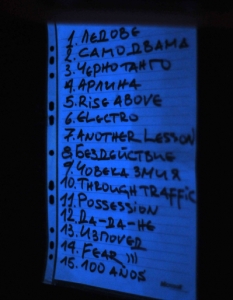 1. ЛЕДОВЕ
2. САМО ДВАМА
3. ЧЕРНО ТАНГО
4. АРЛИНА
5. RISE ABOVE
6. ELECTRO
7. ANOTHER LESSON
8. БЕЗДЕЙСТВИЕ
9. ЧОВЕКА ЗМИЯ
10. THROUGH TRAFFIC
11. POSSESSION
12. ДА-ДА-НЕ
13. ИЗПОВЕД
14. FEAR )))
15. 100 AÑOS